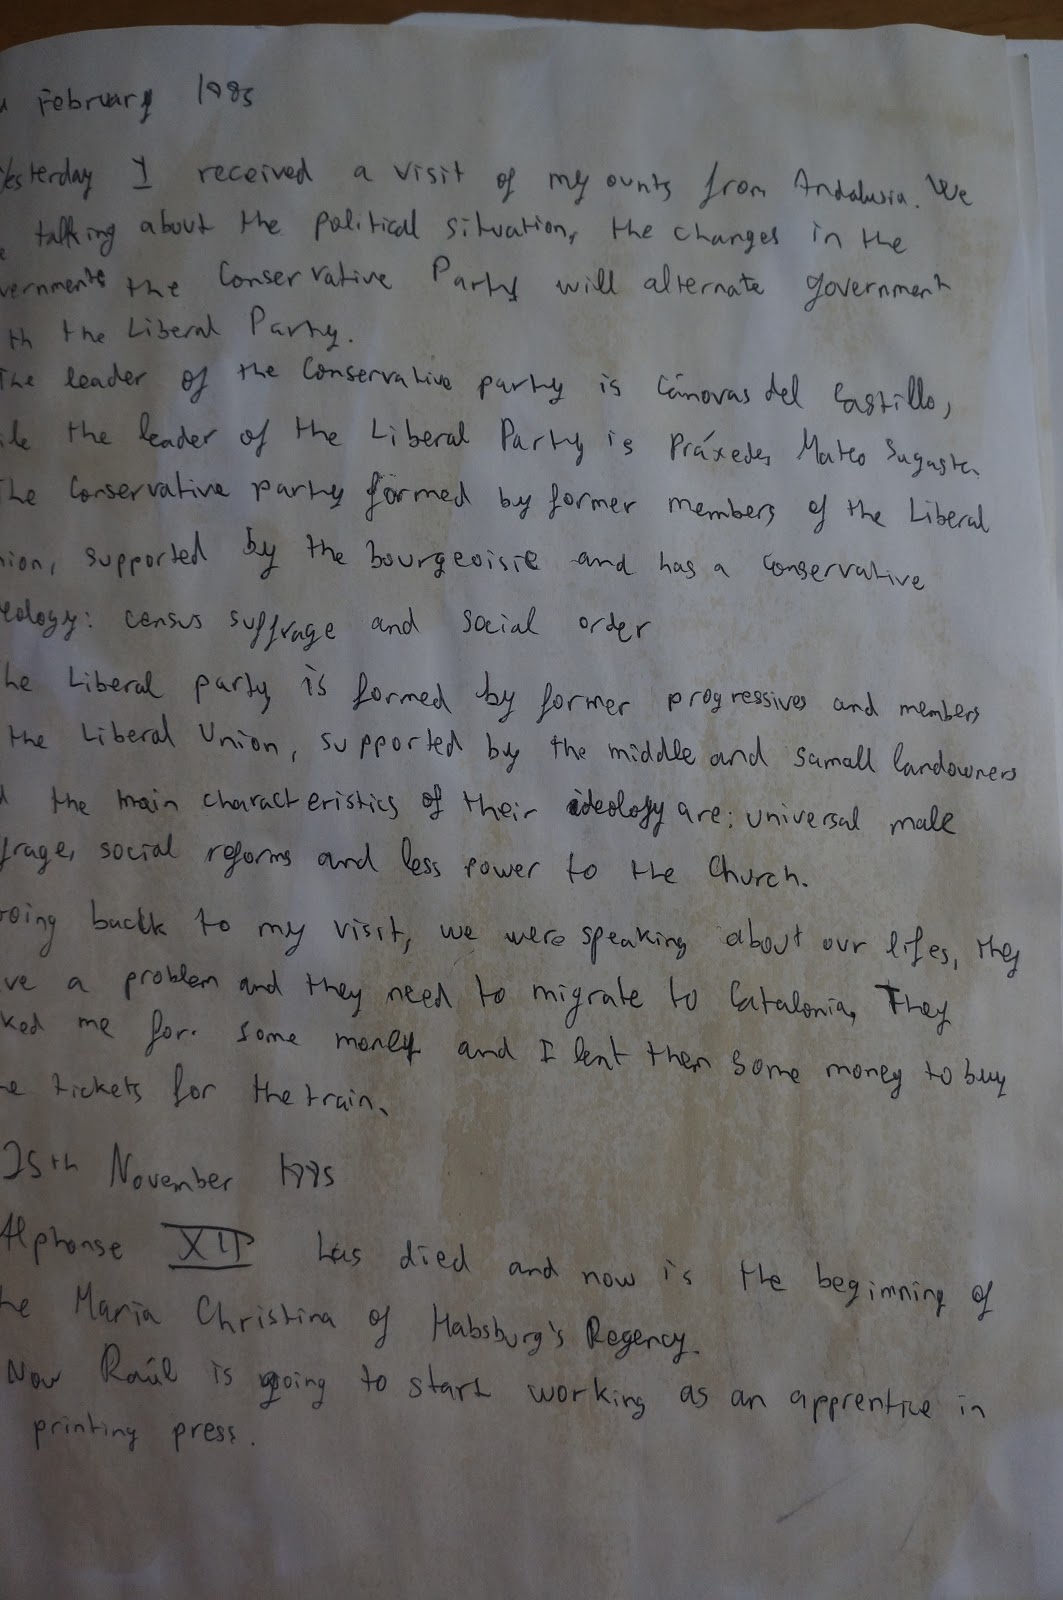 February 1885
Yesterday I received a visit of my ounts from Andalusia. We
talking about the political situation, the changes in the
vernments the Conservative Party will alternate government
th the Liberal Party.
The leader of the Conservative party is Cánovas del Castillo,
ile the leader of the Liberal Party is Práxedes Mateo Sagasta.
The Conservative party formed by former members of the Liberal
nion, supported by the bourgeoisie and has a conservative
eology: census suffrage and social order
he Liberal party is formed by former progressives and members
the Liberal Union, supported by the middle and samall landowners
d the main characteristics of their ideology are: universal male
frage, social reforms and less power to the Church.
Going back to my visit, we were speaking about our lifes, they
ve a problem and they need to migrate to Catalonia, They
ked me for some money and I lent them some money to buy
e tickets for the train.
25th November 1885
Alphonse XII has died and now is the beginning of
he Maria Christina of Habsburg's Regency.
Now Raúl is going to start working as an apprentice in
printing press.